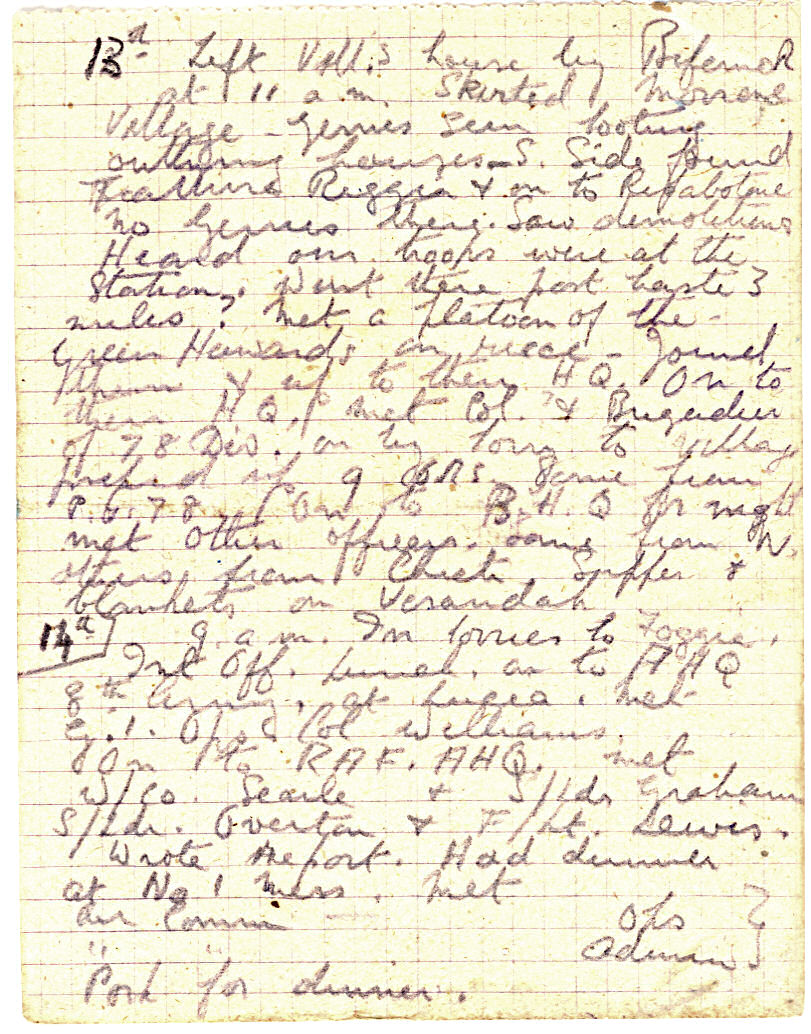 13th Left Vall.s house by Biferno R
at 11 a.m. Skirted Morrone
Village - Gerries seen looting
outlying houses - S. Side found
Reggia & on to Ripabotone
No Gerries there. Saw demolitions
Heard our troops were at the
Station. Went there post haste 3
miles? Met a platoon of the
Green Howards on recce - Joined
them & up to their HQ. On to
their HQ. Met Col. & Brigadier
of 78 Div. on by lorry to village
picked up 9 ORs. Some from
P.G. 78. On to B.H.Q for night
met other officers. Some from N.
others from Chieti Supper &
blankets on Verandah
14th 9 a.m. In lorries to Foggia.
Int Off. Lunch. on to AHQ
8th Army. at Lucera. Met
G.1. Ops Col Williams.
On to RAF. AHQ. met
W/Co. Searle & S/Ldr Graham
S/Ldr. Overton & F/Lt. Lewis.
Wrote Report. Had dinner
at No 1 Mess. Met
Air Comm Ops }
" " Admin }
Pork for dinner.